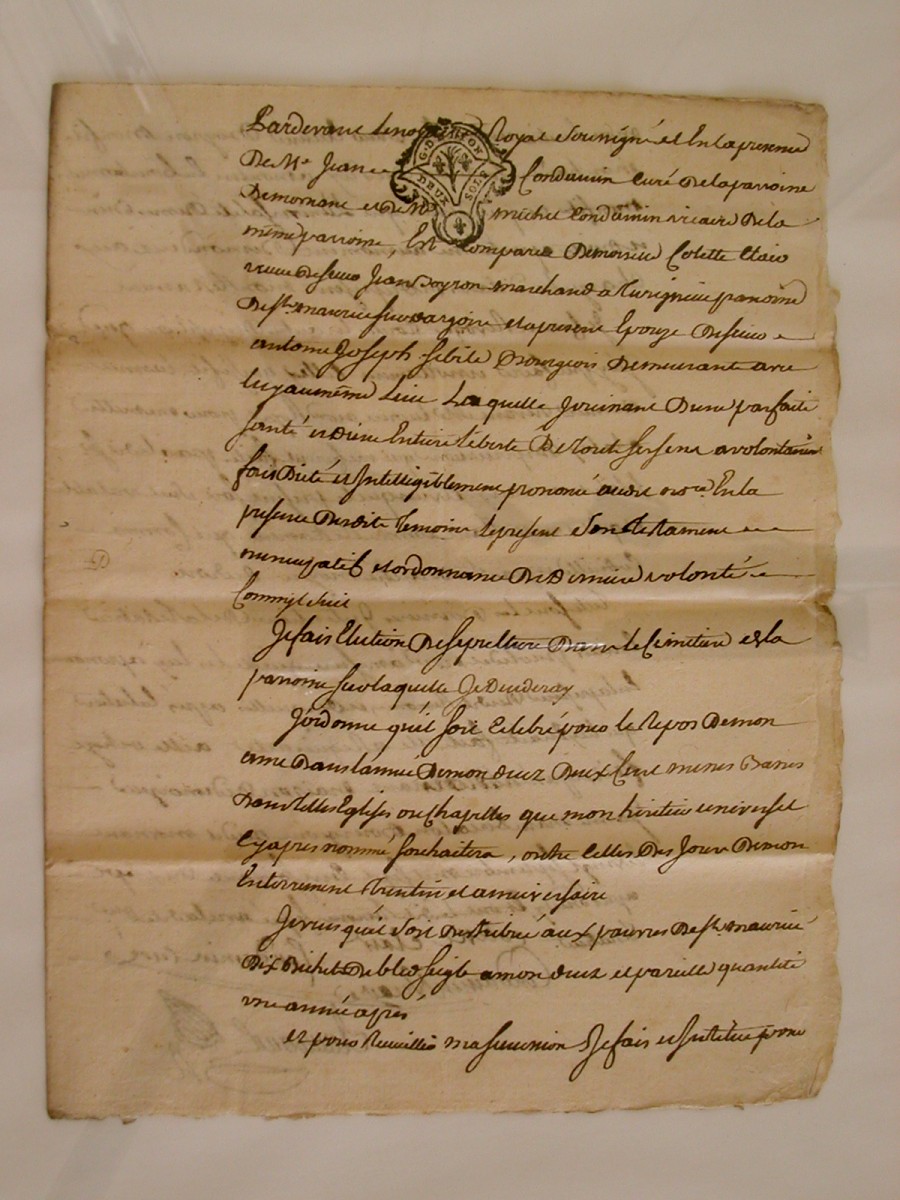 Pardevant le no Royal soussigné et En la presence
De Me Jean Condamin Curé De la parroisse
De mornant et De Me michel Condamin vicaire De la
même parroisse, Est Comparue Demoiselle Colette Clair
veuve De sieur Jean Voyron marchand a parroisse
De st maurice sur dargoire et a present Epouze De sieur
antoine Joseph sebile Bourgeois Demeurant avec
luy au même Lieu Laquelle Jouissant D'une parfaite
santé et D'une Entiere Liberté De tout ses sens a volontairemt
fait Dicté et Intelligiblement prononcé audit nore En la
presence Desdits temoins le present son testament
nuncupatif et ordonnance De Derniere volonté
Comm'il suit
Je fais Election De sepulture Dans le Cimitiere De la
parroisse sur laquelle Je Decederay
J'ordonne qu'il soit Celebré pour le Repos De mon
ame Dans l'année De mon deuz Deux Cent messes Basses
Dans telles Eglises ou Chapelles que mon heritier universel
Cy apres nommé souhaitera, outre Celles Des Jours De mon
Enterrement Trentin et anniversaire
Je veus qu'il soit Distribué aux pauvres De st maurice
Dix Bichets De bled seigle a mon deuz et pareille quantité
une année après
et pour Recueillir ma succession Je fais et Institue pour
G. D. LYON
DEUX SOLS